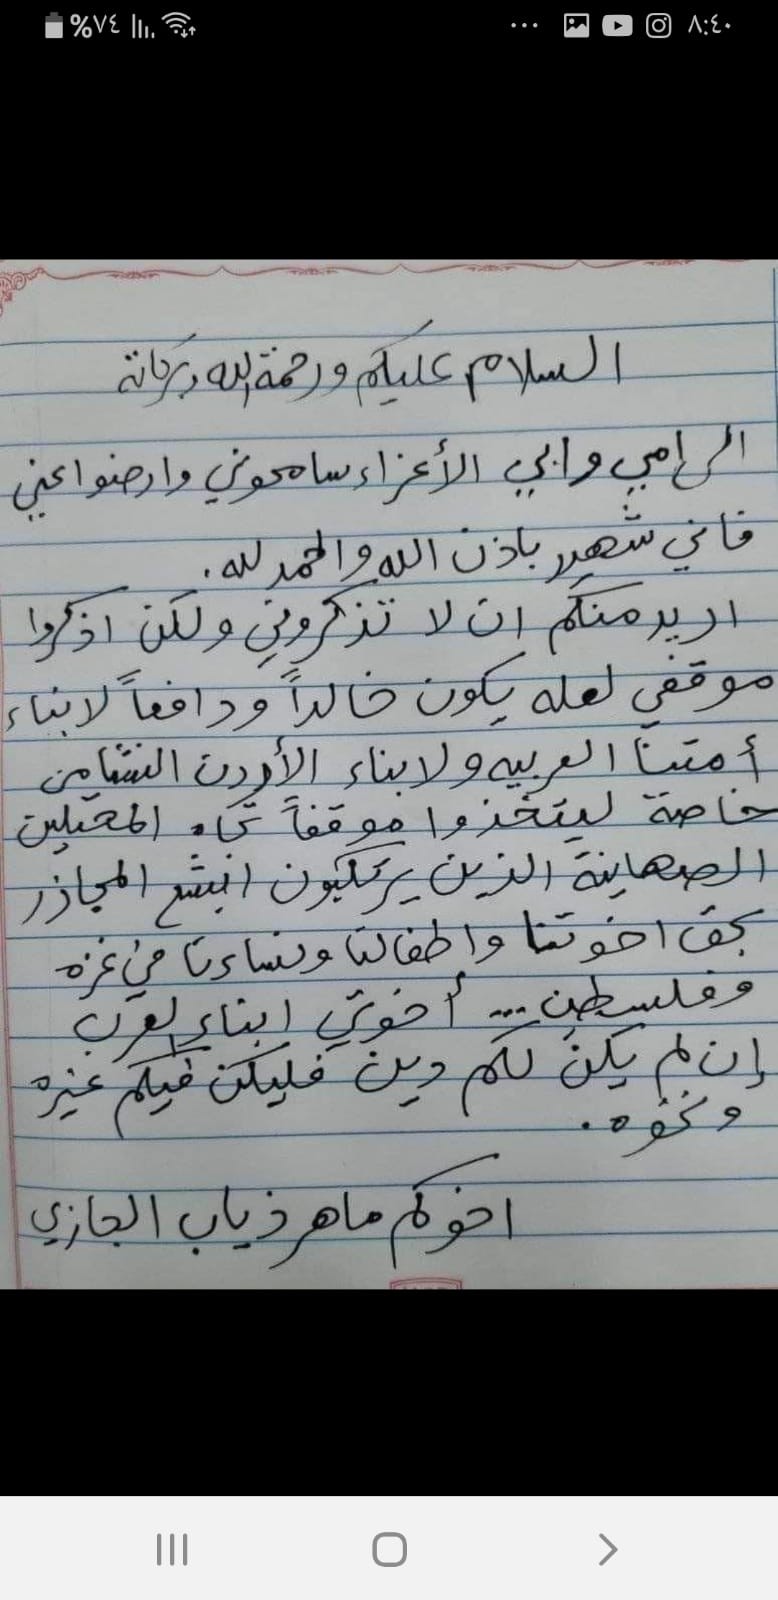 ٨:٤٠ ... %٧٤
السلام عليكم ورحمة الله وبركاتة
الى امي وابي الأعزاء سامحوني وارضوا عني
فاني شهيد باذن الله والحمد لله.
اريد منكم ان لا تذكروني ولكن اذكروا
موقفي لعله يكون خالداً ودافعاً لابناء
أمتنا العربيه ولابناء الأردن النشامى
خاصة ليتخذوا موقفاً تجاه المحتلين
الصهاينة الذين يرتكبون ابشع المجازر
بحق اخوتنا واطفالنا ونساءنا في غزه
وفلسطين ... أخوتي ابناء العرب
إن لم يكن لكم دين فليكن فيكم غيره
ونخوه.
اخوكم ماهر ذياب الجازي